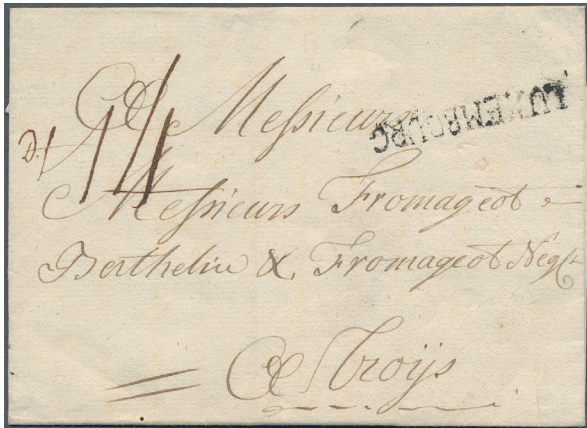 A Messieurs
LUXEMBOURG
14
Messieurs Fromageot
Berthelin & Fromageot Negts
A Troijs